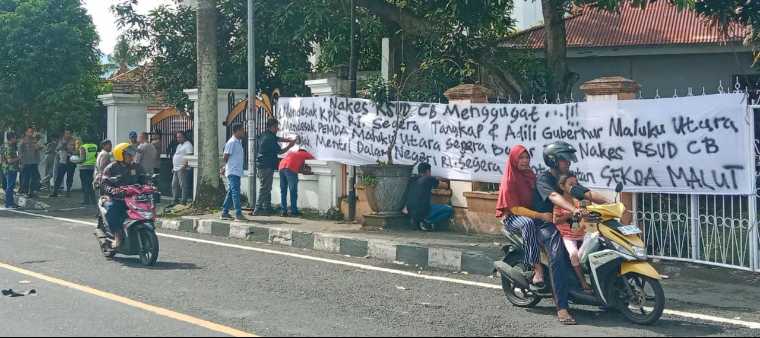 Nakes RSUD CB Menggugat...!!!
Mendesak KPK RI. Segera Tangkap & Adili Gubernur Maluku Utara
Mendesak PEMDA Maluku Utara Segera Nakes RSUD CB
Mentri Dalam Negri RI. Segera SEKDA MALUT